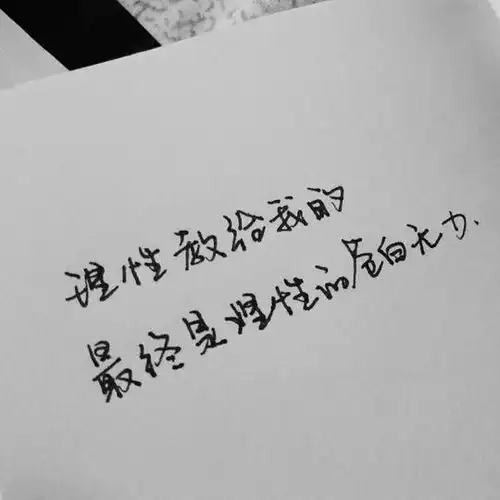 理性教给我的
最终是理性的苍白无力.